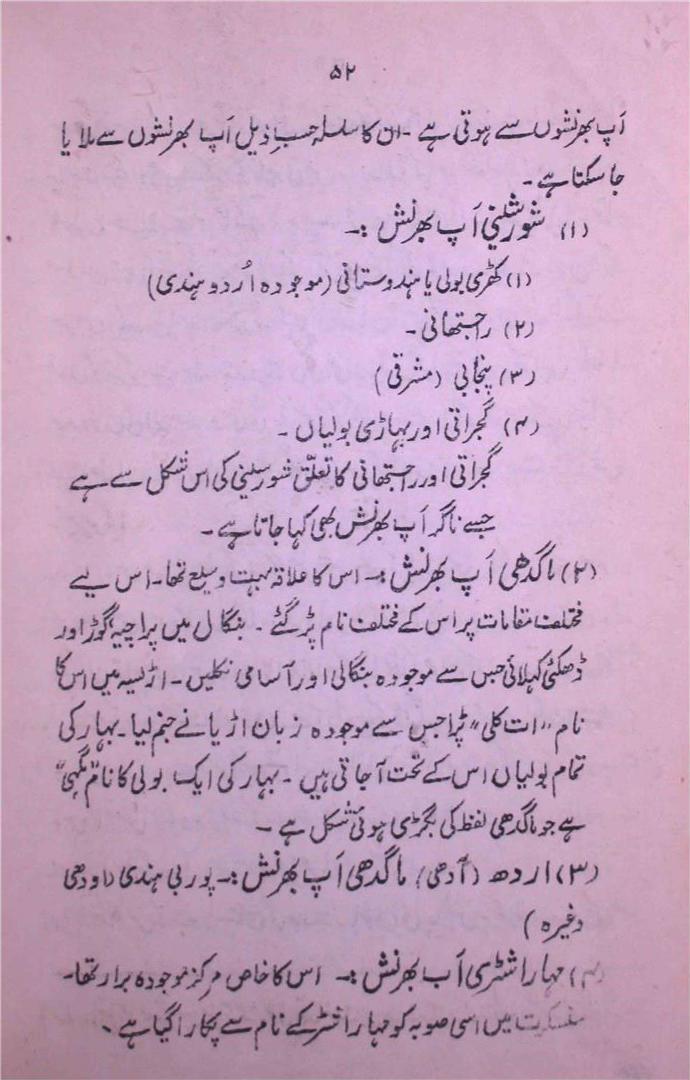 ۵۲
اَپ بھرنشوں سے ہوتی ہے ۔ ان کا سلسلہ حسبِ ذیل اَپ بھرنشوں سے ملایا
جا سکتا ہے ۔
(۱) شورشینی اَپ بھرنش :۔
(۱) کھڑی بولی یا ہندوستانی (موجودہ اُردو ہندی)
(۲) راجستھانی ۔
(۳) پنجابی (مشرقی)
(۴) گجراتی اور پہاڑی بولیاں ۔
گجراتی اور راجستھانی کا تعلق شورسینی کی اس شکل سے ہے
جسے ناگر اَپ بھرنش بھی کہا جاتا ہے ۔
(۲) ماگدھی اَپ بھرنش :۔ اس کا علاقہ بہت وسیع تھا ۔ اس لیے
مختلف مقامات پر اس کے مختلف نام پڑ گئے ۔ بنگال میں پراچیہ گوڑ اور
ڈھکئی کہلائی جس سے موجودہ بنگالی اور آسامی نکلیں ۔ اڑیسہ میں اس کا
نام "ات کلی" پڑا جس سے موجودہ زبان اڑیا نے جنم لیا ۔ بہار کی
تمام بولیاں اس کے تحت آجاتی ہیں ۔ بہار کی ایک بولی کا نام "مگہی"
ہے جو ماگدھی لفظ کی بگڑی ہوئی شکل ہے ۔
(۳) اردھ (آدھی) ماگدھی اَپ بھرنش :۔ پوربی ہندی (اودھی
وغیرہ)
(۴) مہاراشٹری اَپ بھرنش :۔ اس کا خاص مرکز موجودہ برار تھا ۔
سنسکرت میں اسی صوبہ کو مہاراشٹر کے نام سے پکارا گیا ہے ۔